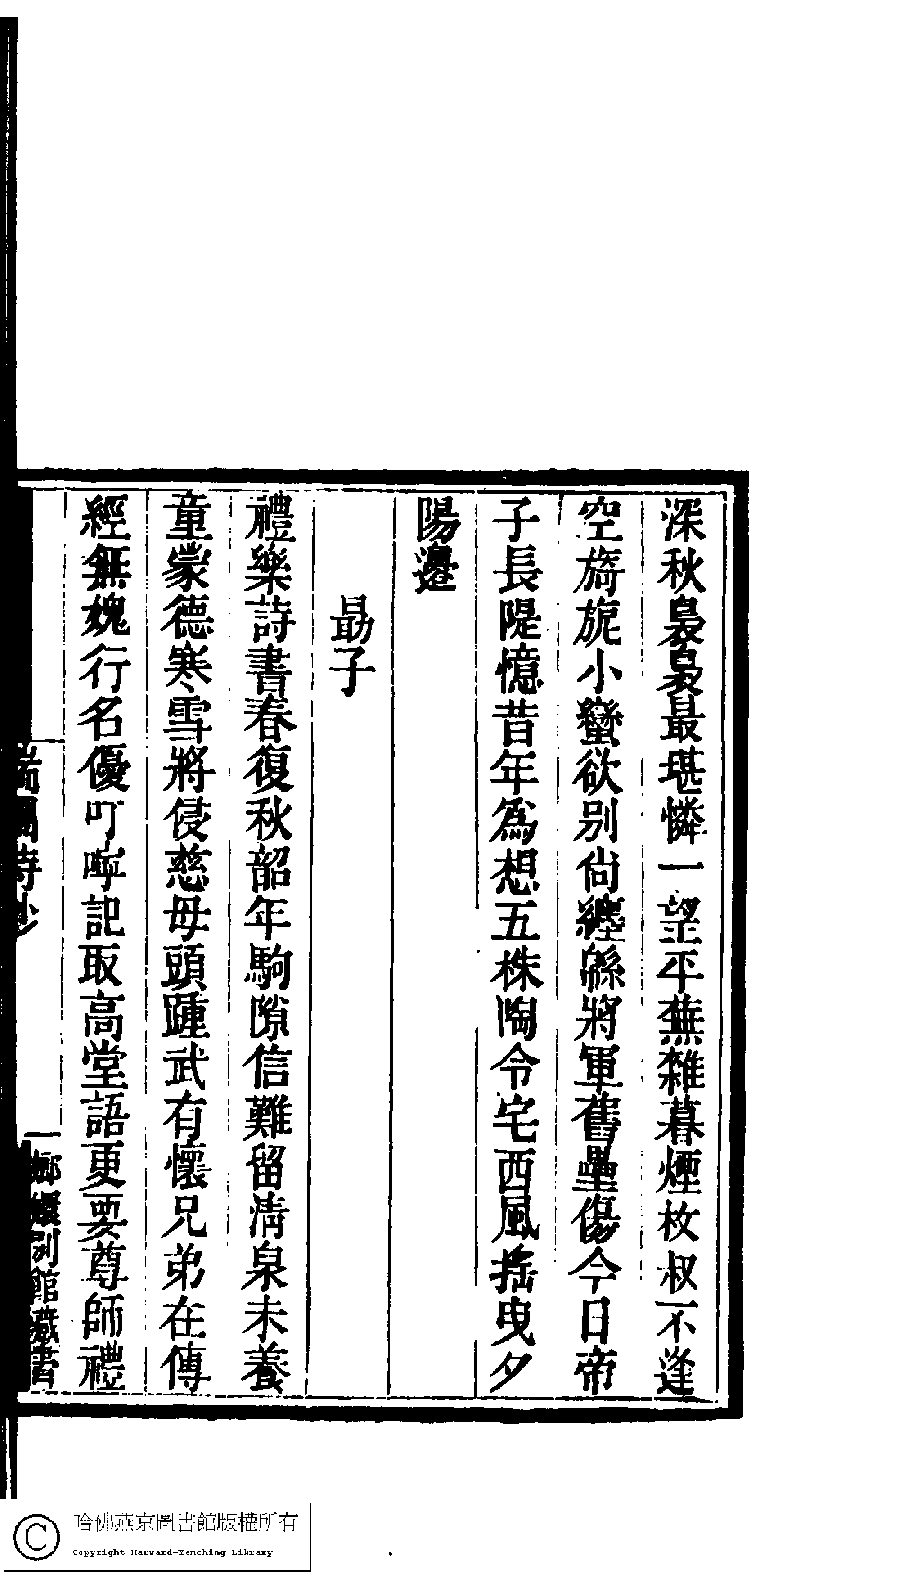 深秋裊裊最堪憐一望平蕪雜暮煙枚叔不逢
空旖旎小蠻欲别尙纏緜將軍舊壘傷今日帝
子長隄憶昔年爲想五株陶令宅西風搖曳夕
陽邊
勗子
禮樂詩書春復秋韶年駒隙信難留淸泉未養
童蒙德寒雪將侵慈母頭踵武有懷兄弟在傳
經無媿行名優叮嚀記取高堂語更要尊師禮
詩鈔
嬛别館藏書
哈佛燕京圖書館版權所有
Copyright Harvard-Yenching Library